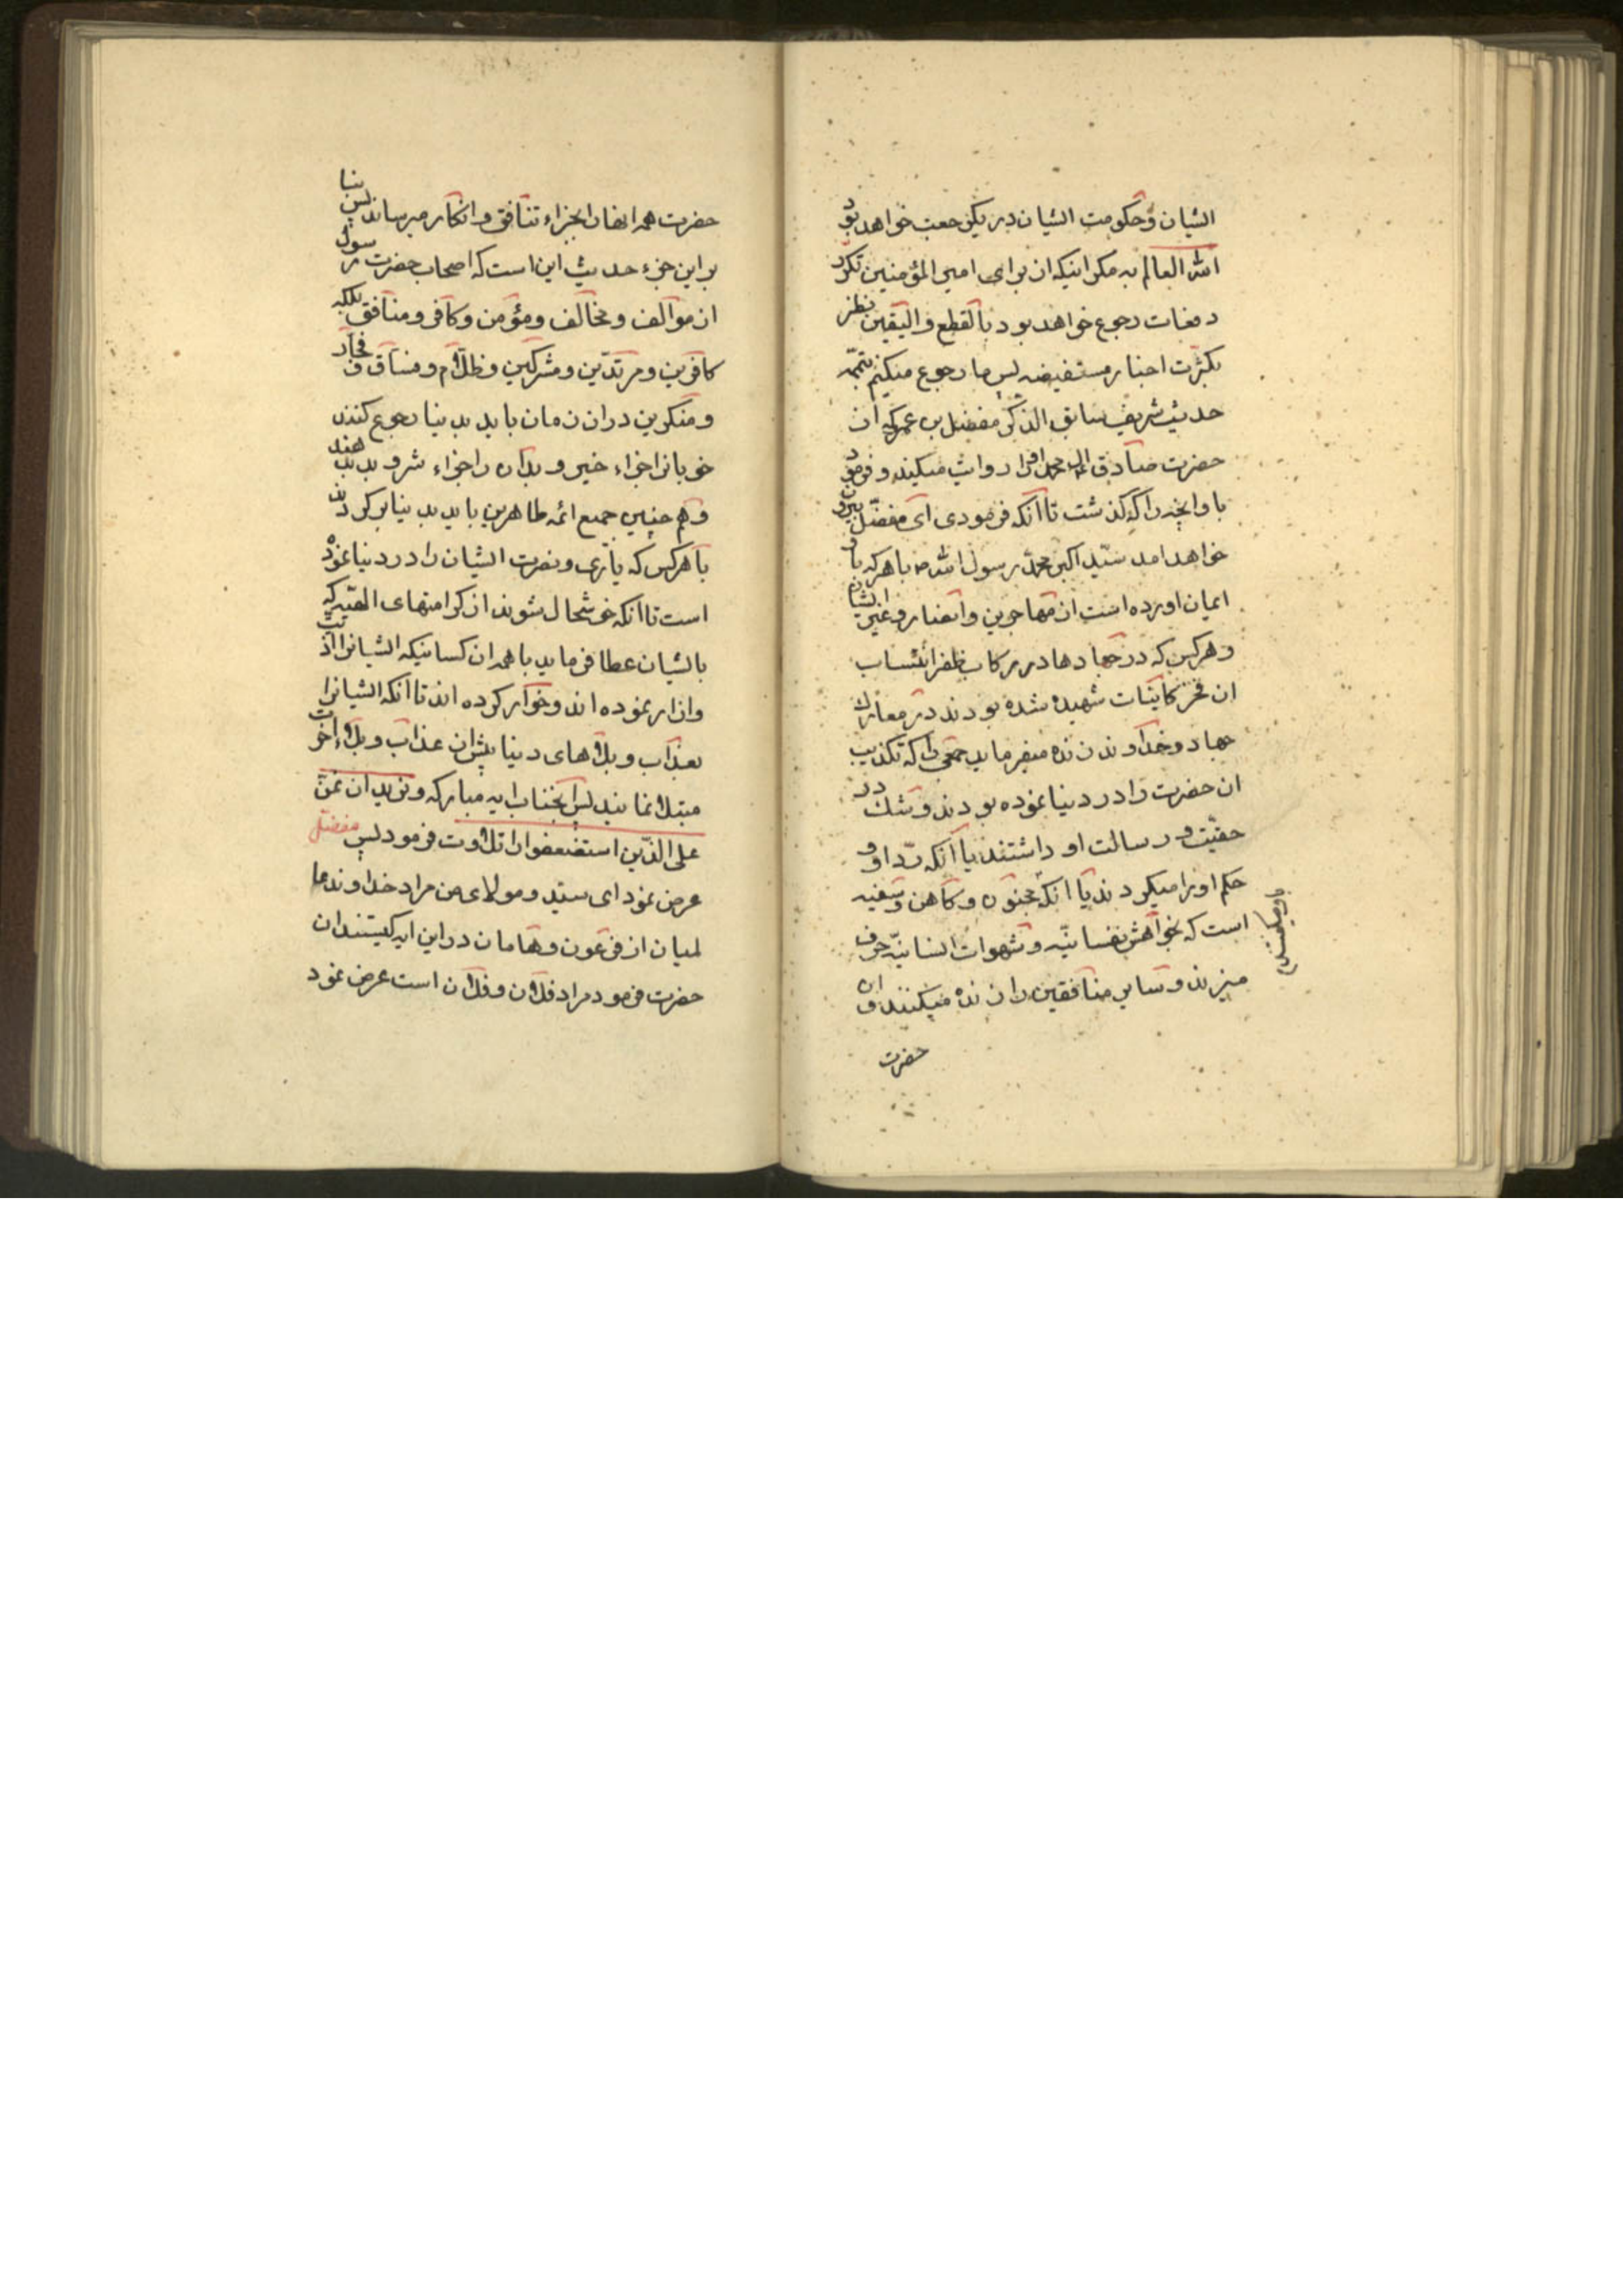 ایشان و حکومت ایشان در یک رجعت خواهد بود
الله العالم به مکر اینکه از برای امیر المؤمنین تکرر
دفعات رجوع خواهد بود بالقطع والیقین نظر
بکثرت اخبار مستفیضه پس ما رجوع میکنیم بتتمه
حدیث شریف سابق الذکر مفضل بن عمر که از
حضرت صادق آل محمد او را روایت میکند و فرمود
باو انچه را که گذشت تا آنکه فرمودی ای مفضل بیرون
خواهد امد سید اکبر محمد رسول الله ص با هر که باو
ایمان اورده است از مهاجرین و انصار و غیر ایشان
و هر کس که در جهادها در رکاب ظفر انتساب
ان فخر کاینات شهید شده بودند در معارک
جهاد و خداوند زنده میفرماید جمعی را که تکذیب
ان حضرت را در دنیا نموده بودند و شک در
حقیت و رسالت او داشتند یا آنکه رد او و
حکم او را میکردند یا آنکه مجنون و کاهن و سفیه
است که بخواهش نفسانیه و شهوات انسانیه حرف
میزند و سایر منافقین را زنده میکنند و ان
حضرت
حضرت همه ایشان بجزاء تنافق و انکار میرساند پس بنا
بر این جزء حدیث این است که اصحاب حضرت رسول
از موالف و مخالف و مؤمن و کافر و منافق بلکه
کافرین و مرتدین و مشرکین و ظلام و فساق و فجار
و منکرین در ان زمان باید بدنیا رجوع کنند
خوبانرا جزاء خیر و بدان را جزاء شر و بد بدهند
و هم چنین جمیع ائمه طاهرین باید بدنیا برگردند
با هر کس که یاری و نصرت ایشان را در دنیا نموده
است تا آنکه خوشحال شوند از کرامتهای الهیه که
بایشان عطا فرماید با همه ان کسانیکه ایشانرا اذیت
و ازار نموده اند و خوار کرده اند تا آنکه ایشانرا
بعذاب و بلاهای دنیا پیش از عذاب و بلاء اخرت
مبتلا نمایند پس انجناب ایه مبارکه و نرید ان نمن
علی الذین استضعفوا را تلاوت فرمود پس مفضل
عرض نمود ای سید و مولای من مراد خداوند
از فرعون و هامان در این ایه کیستند ان
حضرت فرمود مراد فلان و فلان است عرض نمود